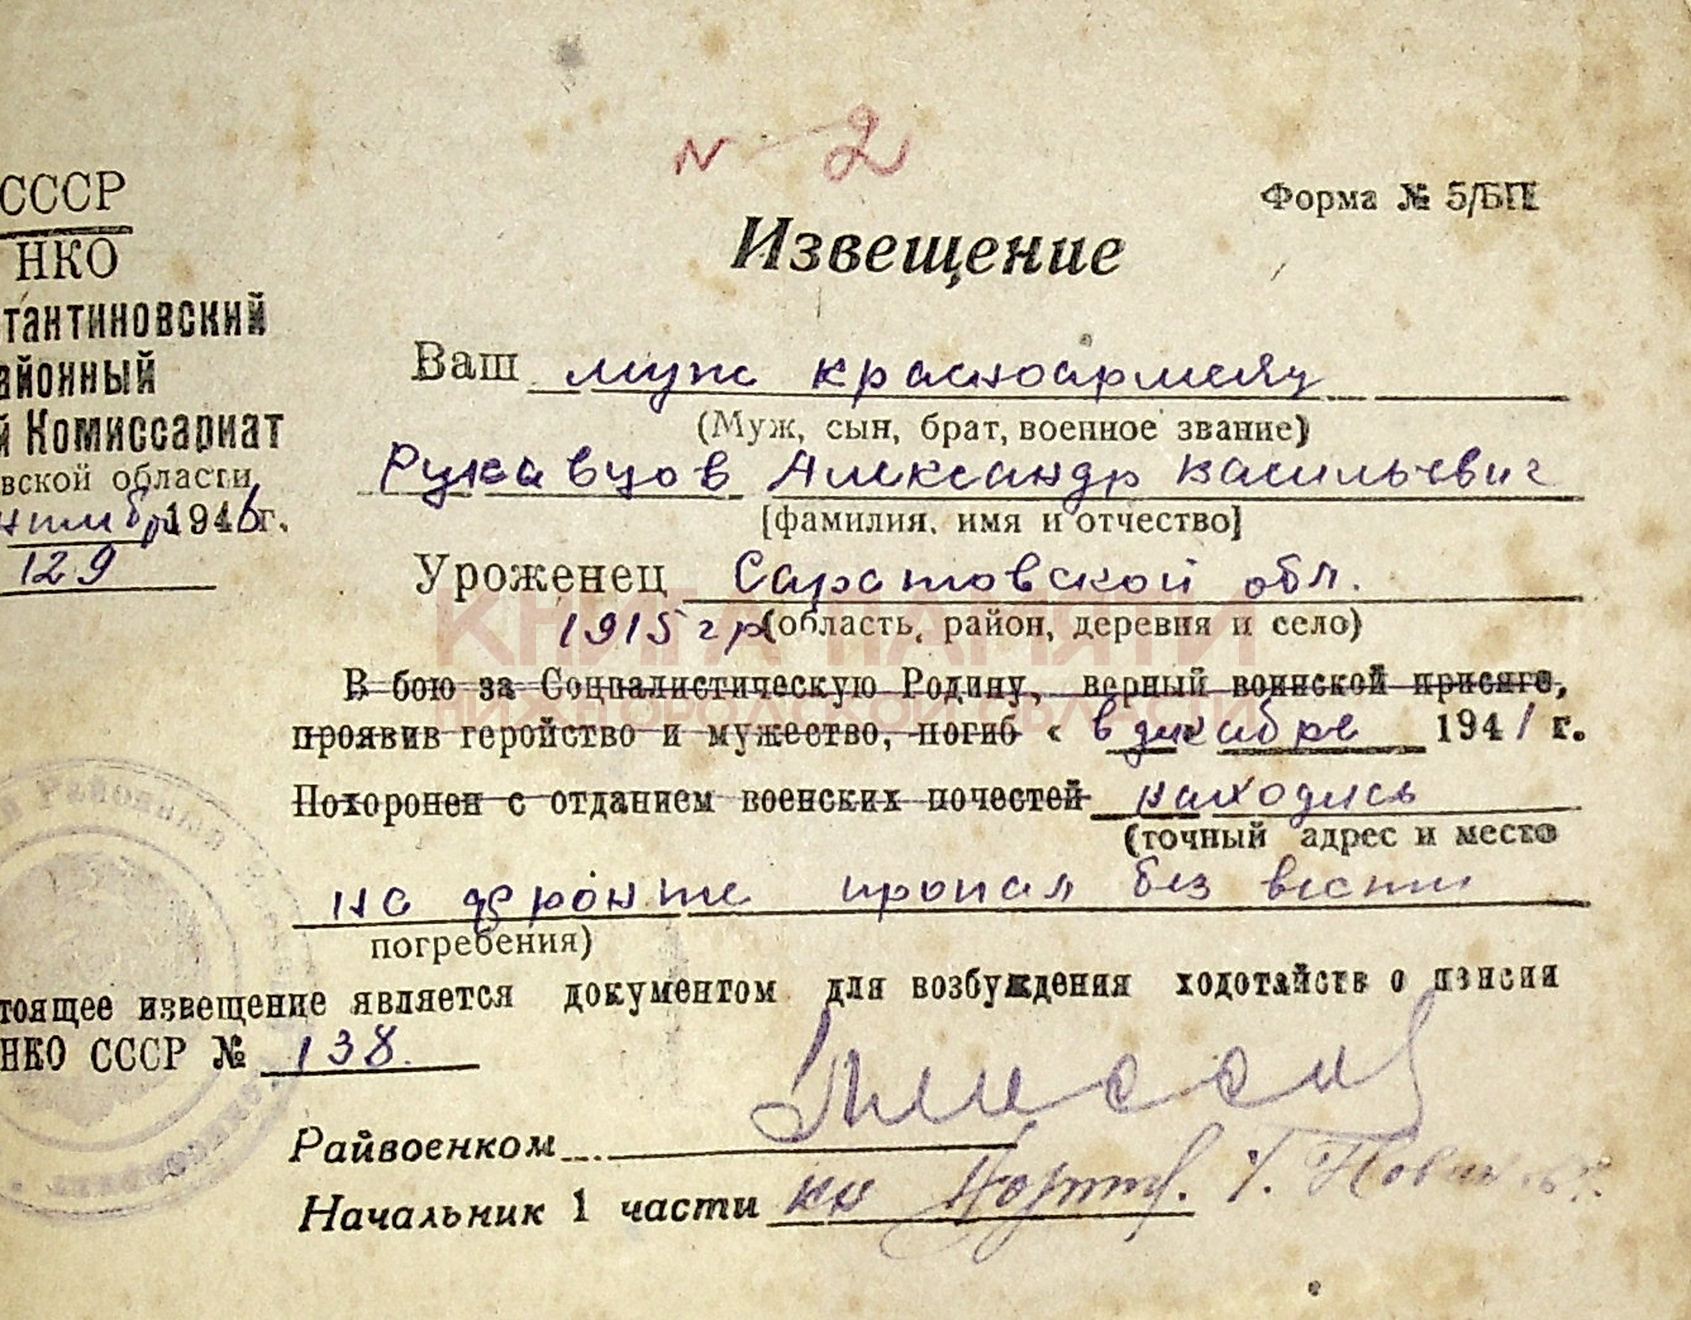 N 2
Форма № 5/БП
СССР
НКО
тантиновский
айонный
й Комиссариат
вской области
нтября 1946 г.
129
Извещение
Ваш муж красноармеец
(Муж, сын, брат, военное звание)
Рукавцов Александр Васильевич
[фамилия, имя и отчество]
Уроженец Саратовской обл.
1915 г р (область, район, деревня и село)
В бою за Социалистическую Родину, верный воинской присяге,
проявив геройство и мужество, погиб « в декабре 1941 г.
Похоронен с отданием военских почестей находясь
(точный адрес и место
на фронте пропал без вести
погребения)
тоящее извещение является документом для возбуждения ходотайств о пенсии
НКО СССР № 138.
Райвоенком
Начальник 1 части
КНИГА ПАМЯТИ
НИЖЕГОРОДСКОЙ ОБЛАСТИ